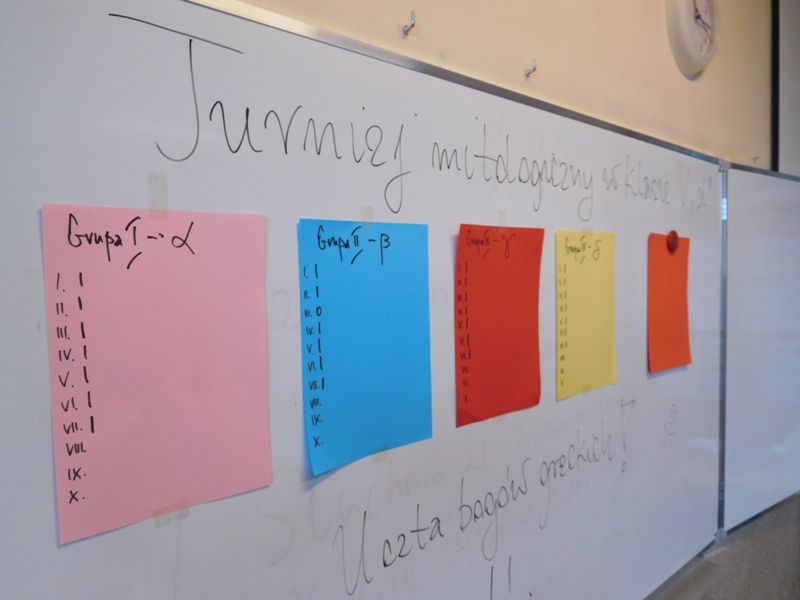 Turniej mitologiczny w klasie V „a"
Grupa I - α
I. 1
II. 1
III. 1
IV. 1
V. 1
VI. 1
VII. 1
VIII.
IX.
X.
Grupa II - β
I. 1
II. 1
III. 0
IV. 1
V. 1
VI. 1
VII. 1
VIII.
IX.
X.
Grupa III - γ
Grupa - δ
Uczta bogów greckich!